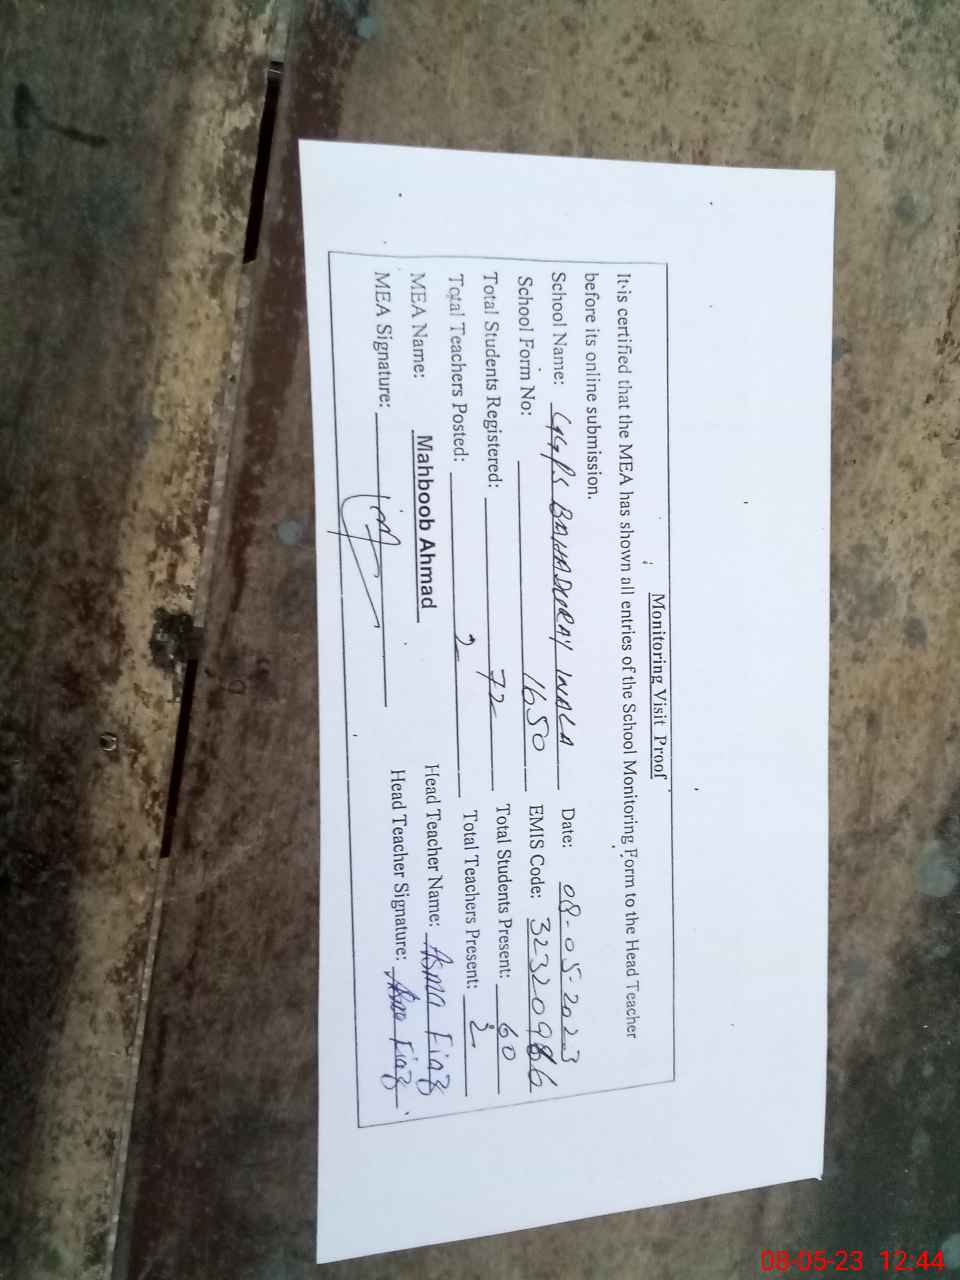 Monitoring Visit Proof
It is certified that the MEA has shown all entries of the School Monitoring Form to the Head Teacher
before its online submission.
School Name: GGPS BAHADURAY WALA Date: 08-05-2023
School Form No: 1650 EMIS Code: 32320986
Total Students Registered: 72 Total Students Present: 60
Total Teachers Posted: 2 Total Teachers Present: 2
MEA Name: Mahboob Ahmad Head Teacher Name: Asma Fiaz
MEA Signature: Head Teacher Signature: Asma Fiaz
08-05-23 12:44